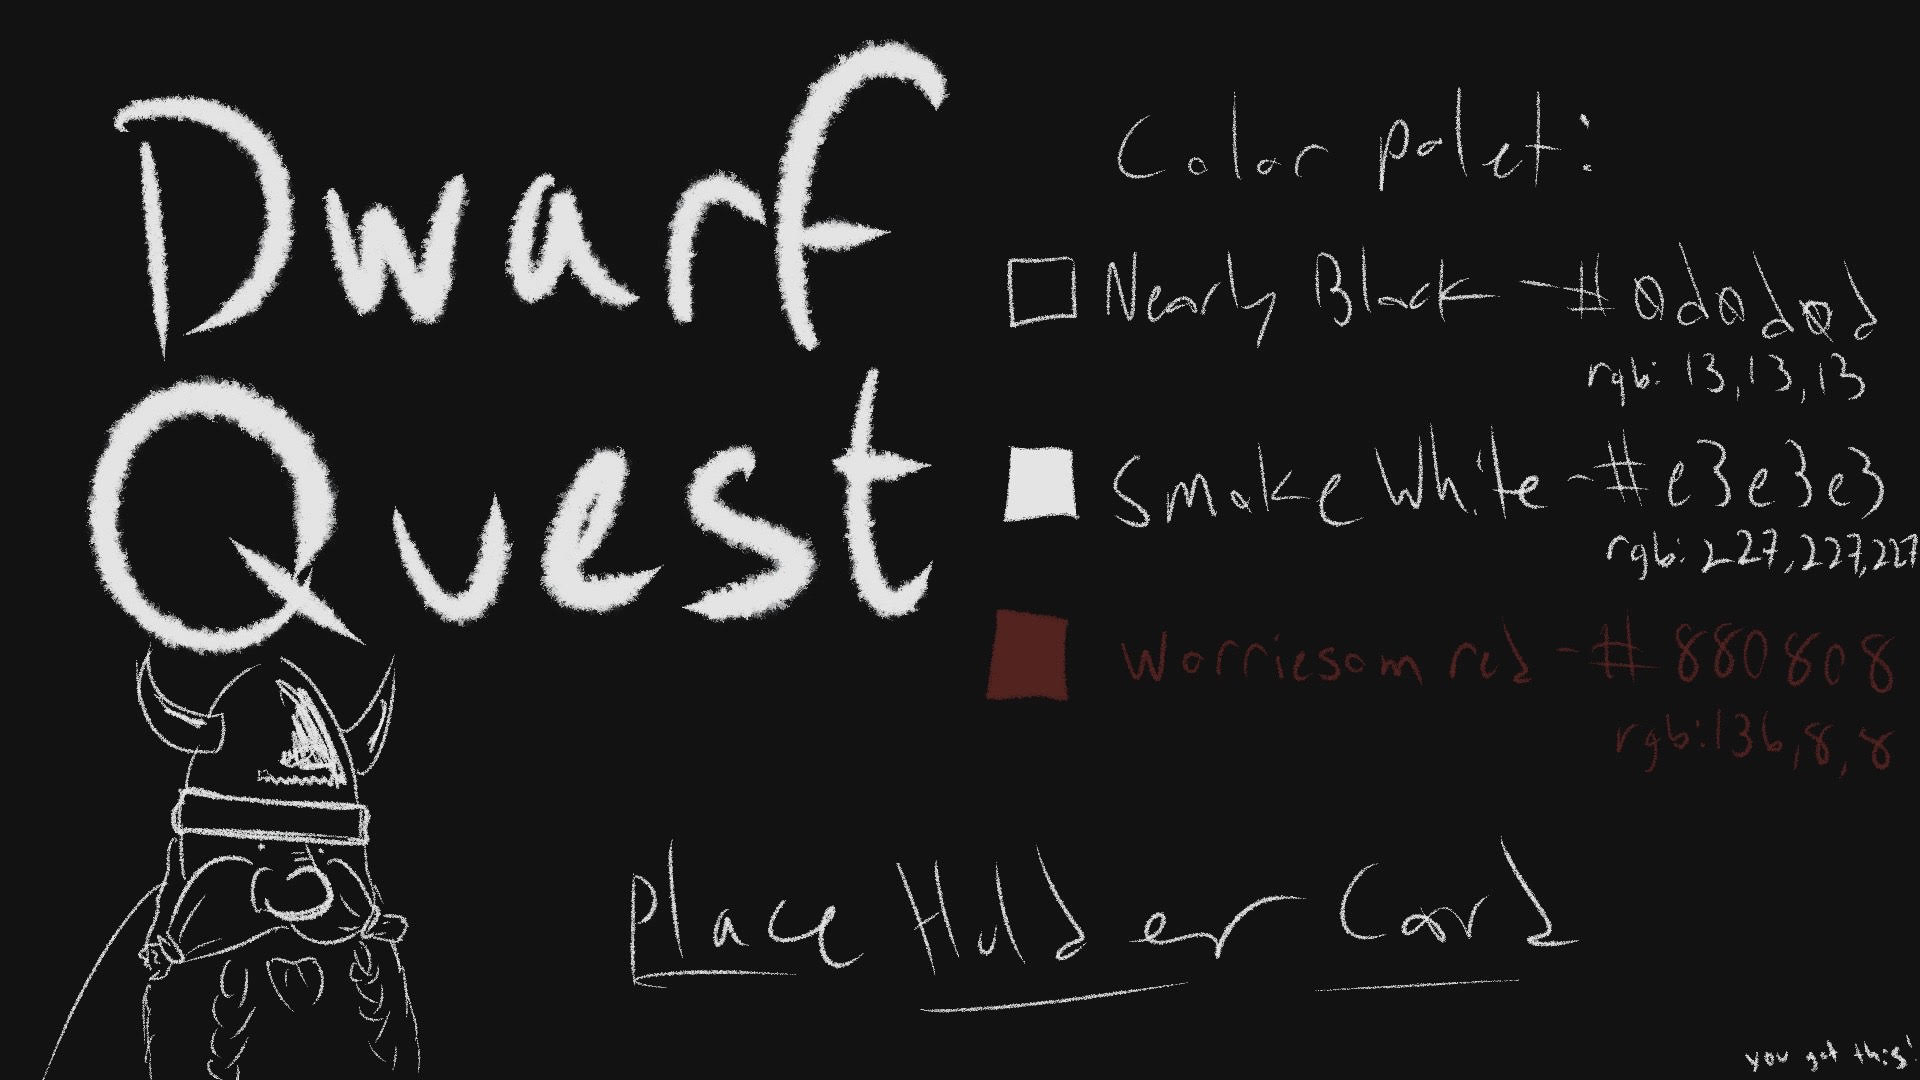 Dwarf
Quest
Color palet:
Nearly Black - #0d0d0d
rgb: 13,13,13
Smoke White - #e3e3e3
rgb: 227,227,227
Worriesom red - #880808
rgb: 136,8,8
Place Holder Card
you got this!